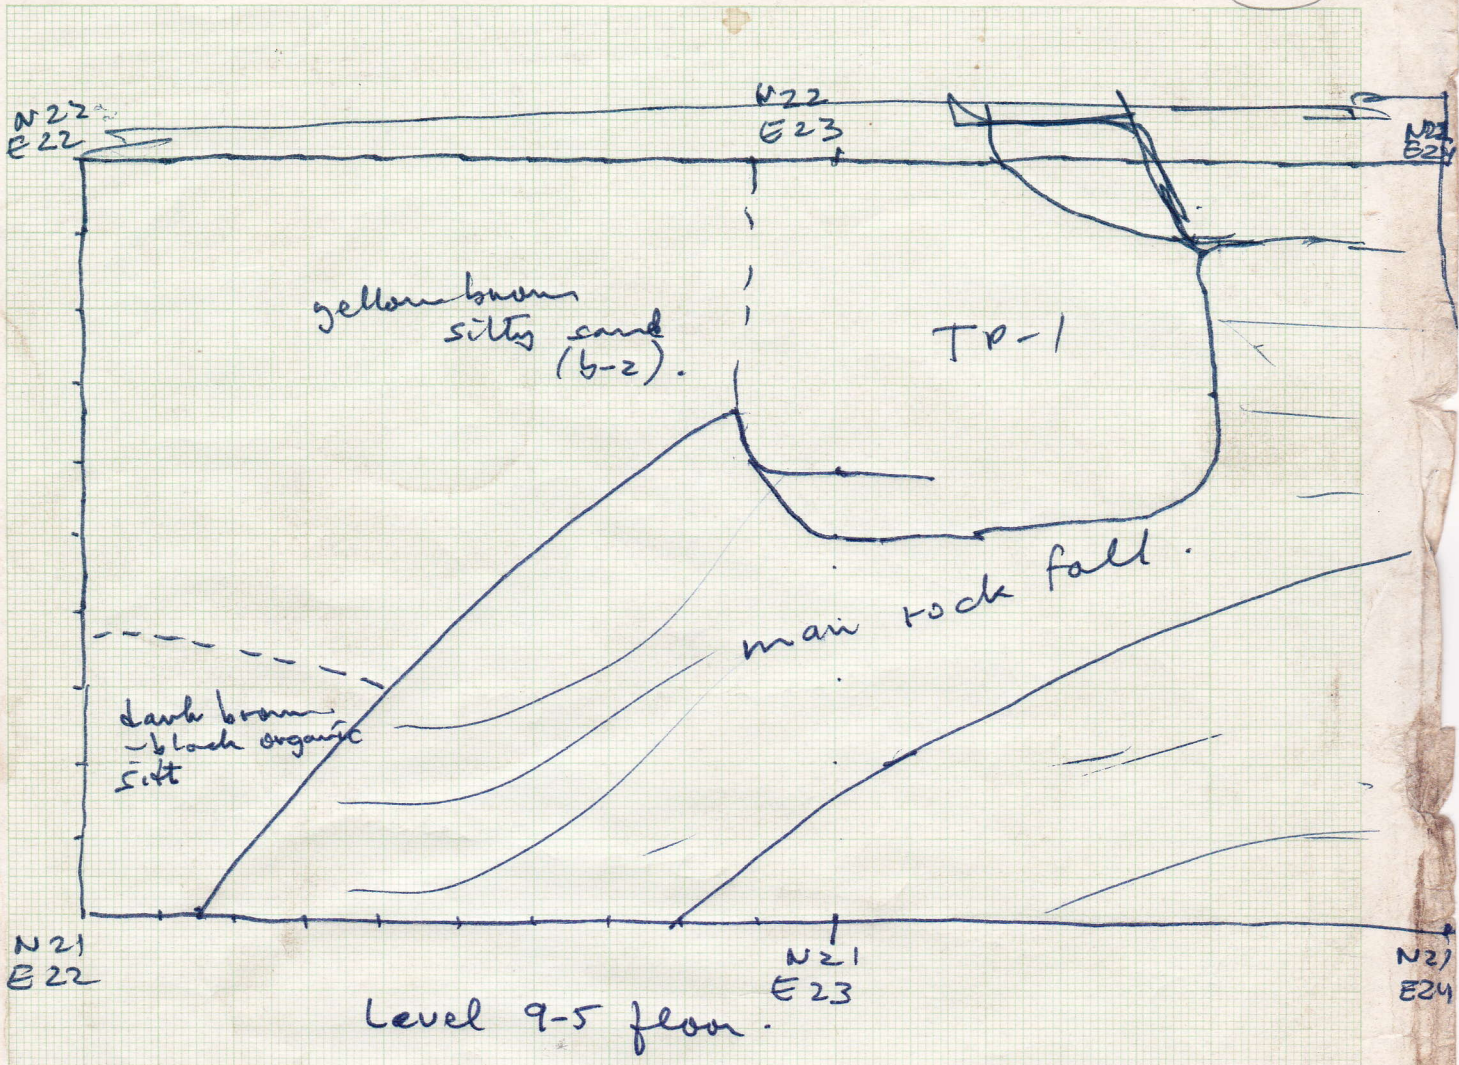 N22
E22
N22
E23
N22
E24
yellow brown
silty sand
(b-2).
TP-1
main rock fall.
dark brown
-black organic
silt
N21
E22
N21
E23
N21
E24
Level 9-5 floor.